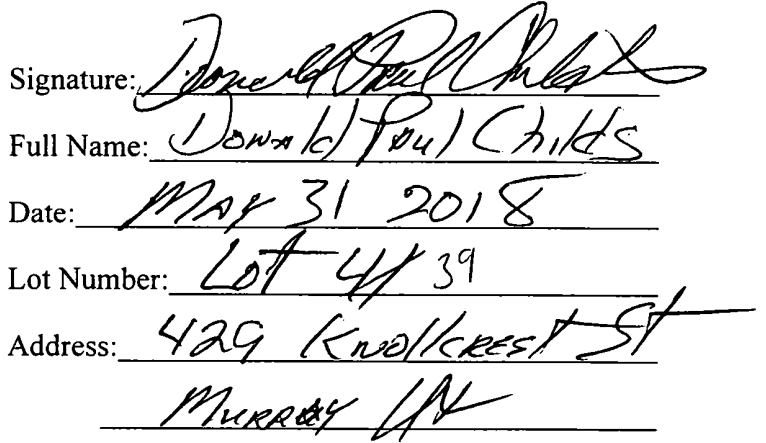 Signature: Donald Paul Childs
Full Name: Donald Paul Childs
Date: May 31 2018
Lot Number: Lot 41 39
Address: 429 Knollcrest St
Murray Ut